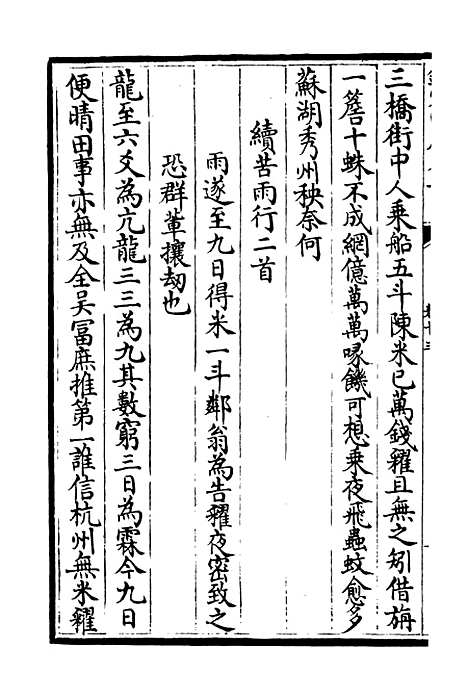 三橋街中人乘船五斗陳米已萬錢糴且無之矧借旃
一簷十蛛不成網億萬萬喙饑可想乘夜飛蟲蚊愈多
蘇湖秀州秧奈何
續苦雨行二首
雨遂至九日得米一斗鄰翁為告糴夜密致之
恐群軰攘刼也
龍至六爻為亢龍三三為九其數窮三日為霖今九日
便晴田事亦無及全吳冨庶推第一誰信杭州無米糴